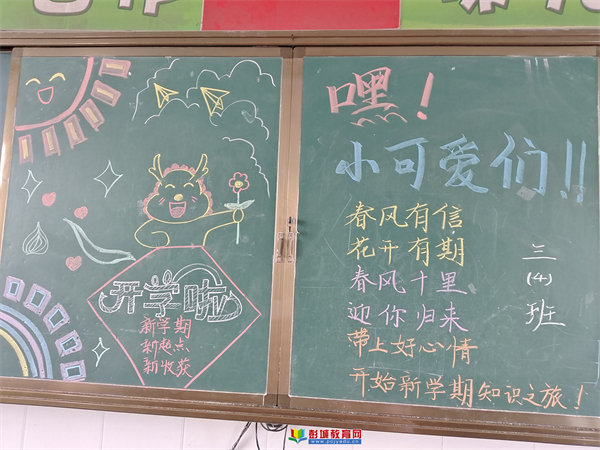 开学啦
新学期
新起点
新收获
嘿！
小可爱们!!
春风有信
花开有期
春风十里
迎你归来
带上好心情
开始新学期知识之旅！
三
(4)
班
彭城教育网